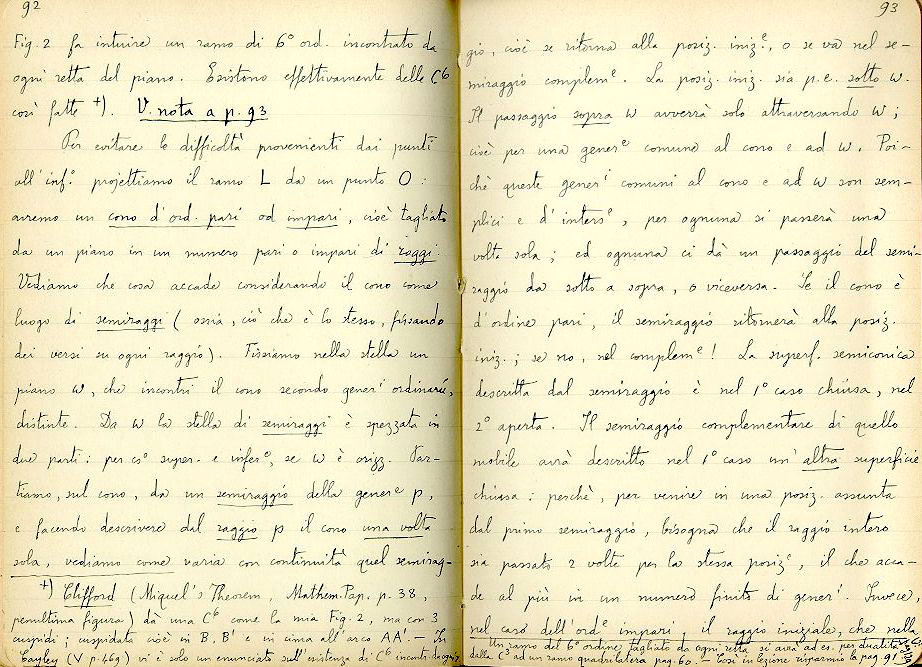 92
Fig. 2 fa intuire un ramo di 6° ord. incontrato da
ogni retta del piano. Esistono effettivamente delle C⁶
così fatte +). V. nota a p. 93
Per evitare le difficoltà provenienti dai punti
all'inf.° projettiamo il ramo L da un punto O:
avremo un cono d'ord. pari od impari, cioè tagliato
da un piano in un numero pari o impari di raggi.
Vediamo che cosa accade considerando il cono come
luogo di semiraggi (ossia, ciò che è lo stesso, fissando
dei versi su ogni raggio). Fissiamo nella stella un
piano w, che incontri il cono secondo gener.i ordinarie,
distinte. Da w la stella di semiraggi è spezzata in
due parti: per es.° super. e infer.e, se w è orizz. Par-
tiamo, sul cono, da un semiraggio della gener.e p,
e facendo descrivere dal raggio p il cono una volta
sola, vediamo come varia con continuità quel semirag-
+) Clifford (Miquel's Theorem, Mathem. Pap. p. 38,
penultima figura) dà una C⁶ come la mia Fig. 2, ma con 3
cuspidi; cuspidata cioè in B, B' e in cima all'arco AA'. — In
Cayley (V p. 469) vi è solo un enunciato sull'esistenza di C⁶ incont. da ogni
93
gio, cioè se ritorna alla posiz. iniz.e, o se va nel se-
miraggio complem.e. La posiz. iniz. sia p.e. sotto w.
Il passaggio sopra w avverrà solo attraversando w;
cioè per una gener.e comune al cono e ad w. Poi-
chè queste gener.i comuni al cono e ad w son sem-
plici e d'inters.e, per ognuna si passerà una
volta sola; ed ognuna ci dà un passaggio del semi-
raggio da sotto a sopra, o viceversa. Se il cono è
d'ordine pari, il semiraggio ritornerà alla posiz.
iniz.; se no, nel complem.e! La superf. semiconica
descritta dal semiraggio è nel 1° caso chiusa, nel
2° aperta. Il semiraggio complementare di quello
mobile avrà descritto nel 1° caso un'altra superficie
chiusa: perchè, per venire in una posiz. assunta
dal primo semiraggio, bisogna che il raggio intero
sia passato 2 volte per la stessa posiz.e, il che acca-
de al più in un numero finito di gener.i. Invece,
nel caso dell'ord.e impari, il raggio iniziale, che nella
Un ramo del 6° ordine tagliato da ogni retta si avrà ad es. per dualità
dalla C³ ad un ramo quadrilatera pag. 60. — Così in lezione risparmio la pag. 91